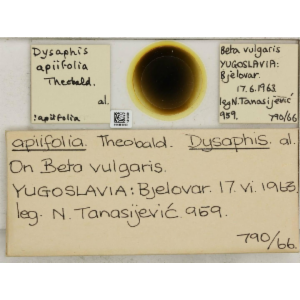 Dysaphis
apiifolia
Theobald.
al.
:apiifolia
Beta vulgaris
YUGOSLAVIA:
Bjelovar.
17.6.1963
leg N. Tanasijević
959.
790/66
apiifolia. Theobald. Dysaphis. al.
On Beta vulgaris.
YUGOSLAVIA: Bjelovar. 17. vi. 1963.
leg. N. Tanasijević. 959.
790/66.